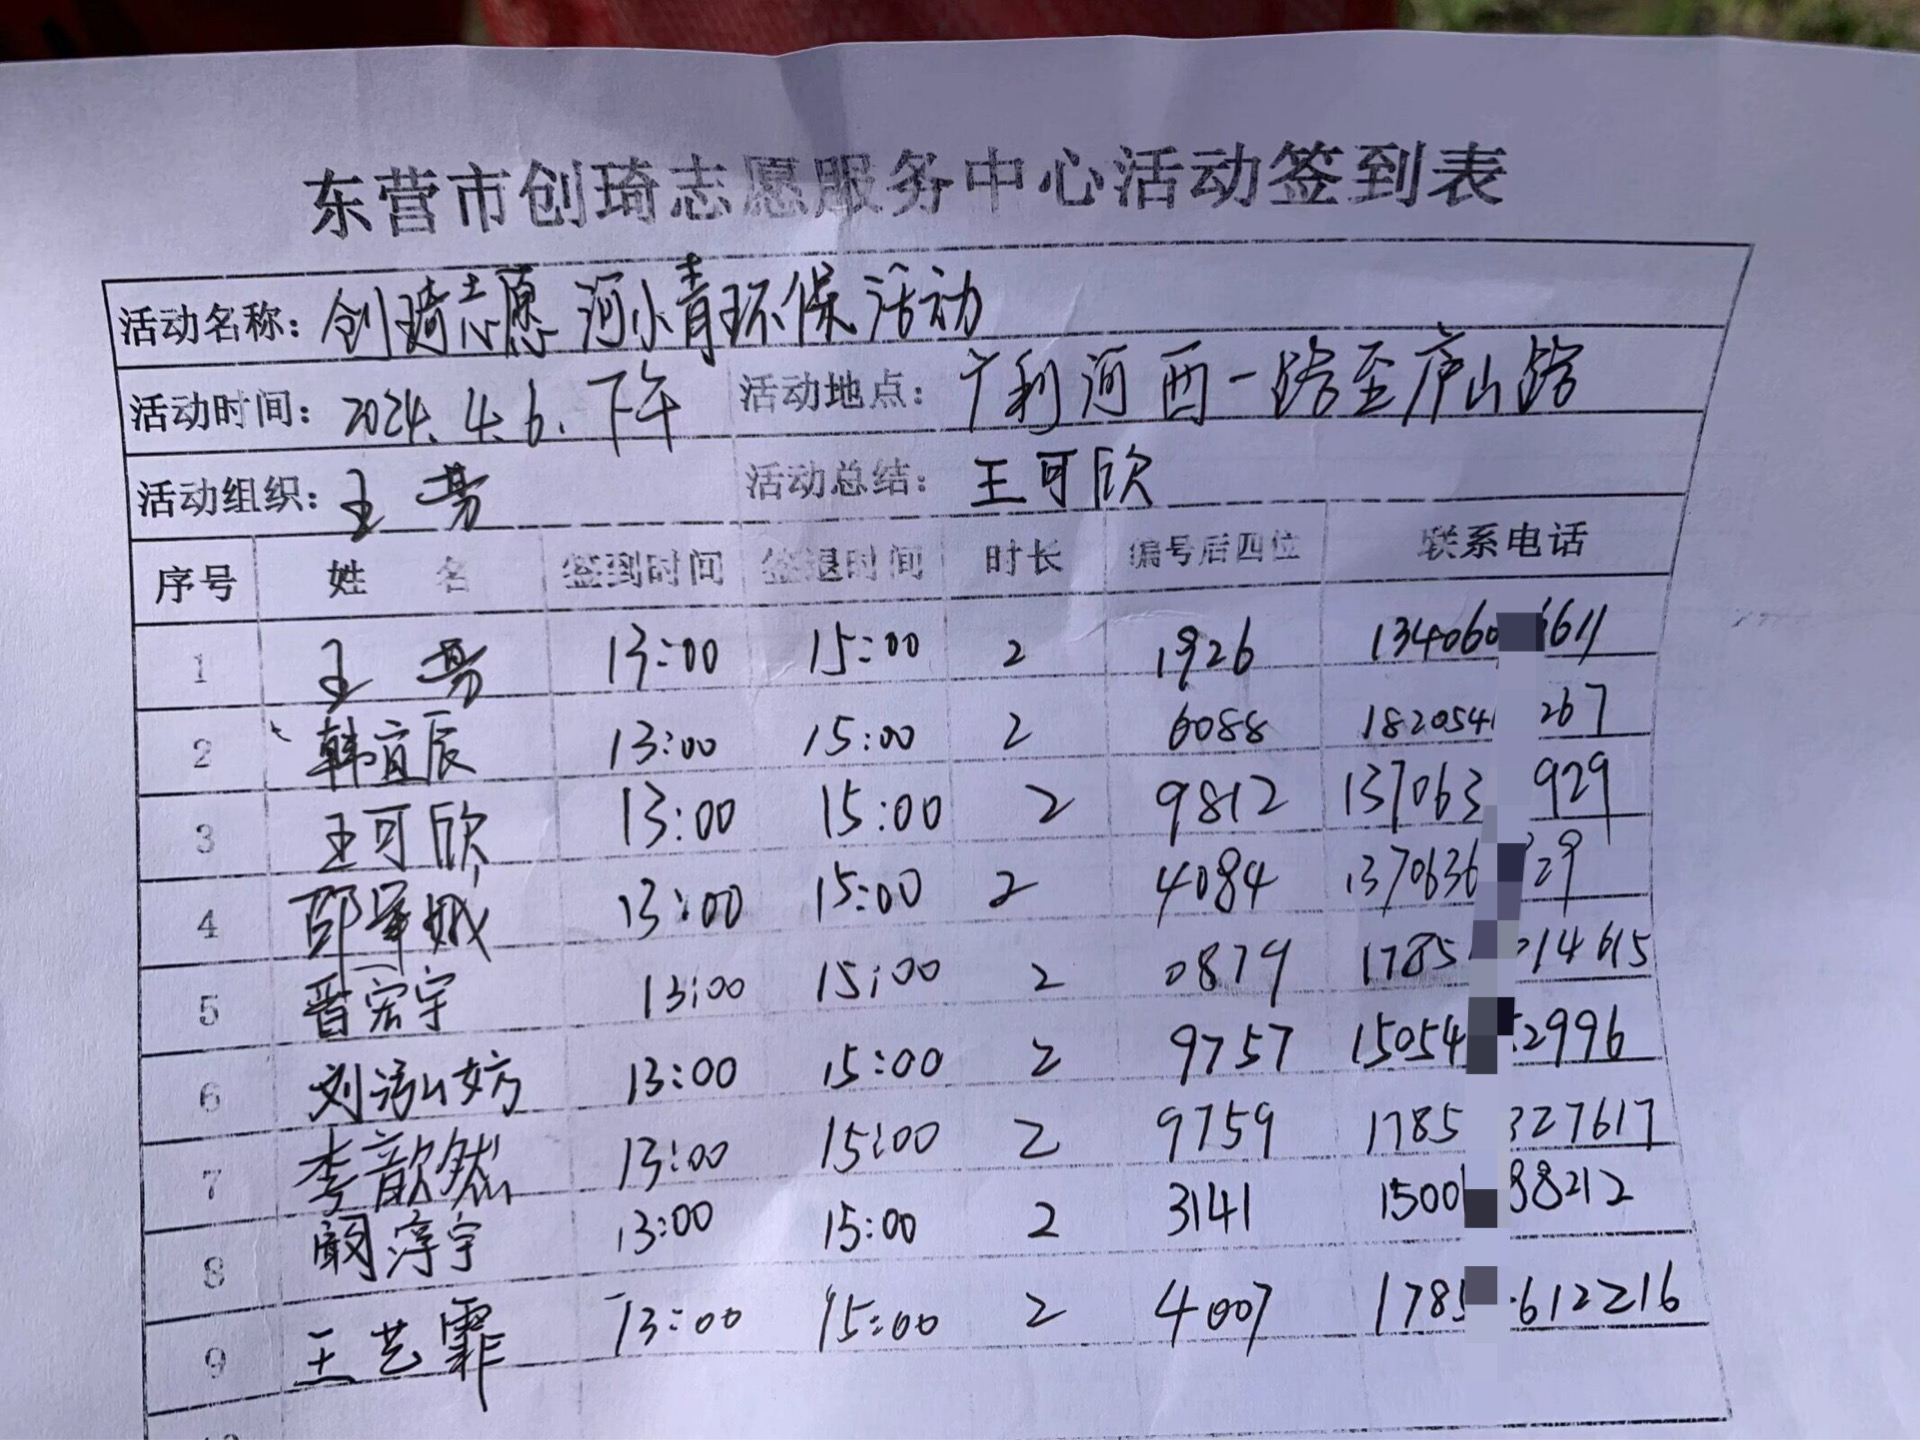 东营市创琦志愿服务中心活动签到表
活动名称：创琦志愿 河小青环保活动
活动时间：2024.4.6.下午 活动地点：广利河西一路至庐山路
活动组织：王芳 活动总结：王可欣
序号 姓名 签到时间 签退时间 时长 编号后四位 联系电话
1 王芳 13:00 15:00 2 1926 134060 6611
2 韩宜辰 13:00 15:00 2 6088 1820541 267
3 王可欣 13:00 15:00 2 9812 137063 929
4 邵 娥 13:00 15:00 2 4084 1370636 29
5 晋宏宇 13:00 15:00 2 0879 1785 14615
6 刘泓妨 13:00 15:00 2 9757 15054 2996
7 李歆然 13:00 15:00 2 9759 1785 327617
8 阚淳宇 13:00 15:00 2 3141 1500 88212
9 王艺霏 13:00 15:00 2 4007 1785 612216